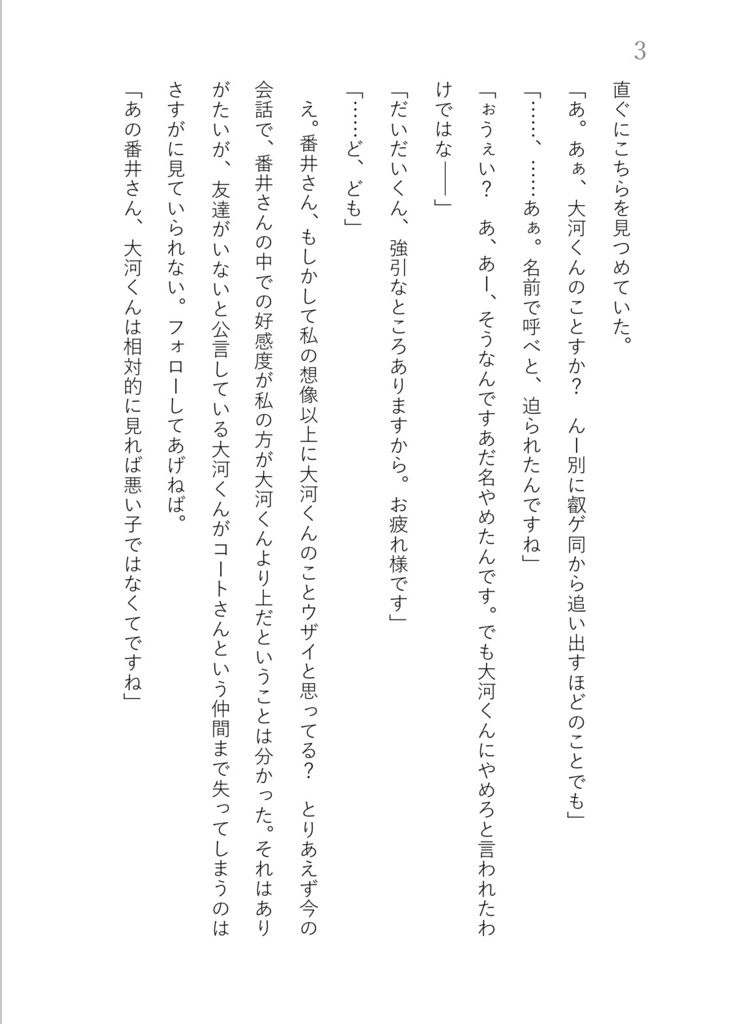 3
直ぐにこちらを見つめていた。
「あ。あぁ、大河くんのことすか？　んー別に叡ゲ同から追い出すほどのことでも」
「……、……あぁ。名前で呼べと、迫られたんですね」
「ぉうぇい？　あ、あー、そうなんですあだ名やめたんです。でも大河くんにやめろと言われたわ
けではな――」
「だいだいくん、強引なところありますから。お疲れ様です」
「……ど、ども」
　え。番井さん、もしかして私の想像以上に大河くんのことウザイと思ってる？　とりあえず今の
会話で、番井さんの中での好感度が私の方が大河くんより上だということは分かった。それはあり
がたいが、友達がいないと公言している大河くんがコートさんという仲間まで失ってしまうのは
さすがに見ていられない。フォローしてあげねば。
「あの番井さん、大河くんは相対的に見れば悪い子ではなくてですね」